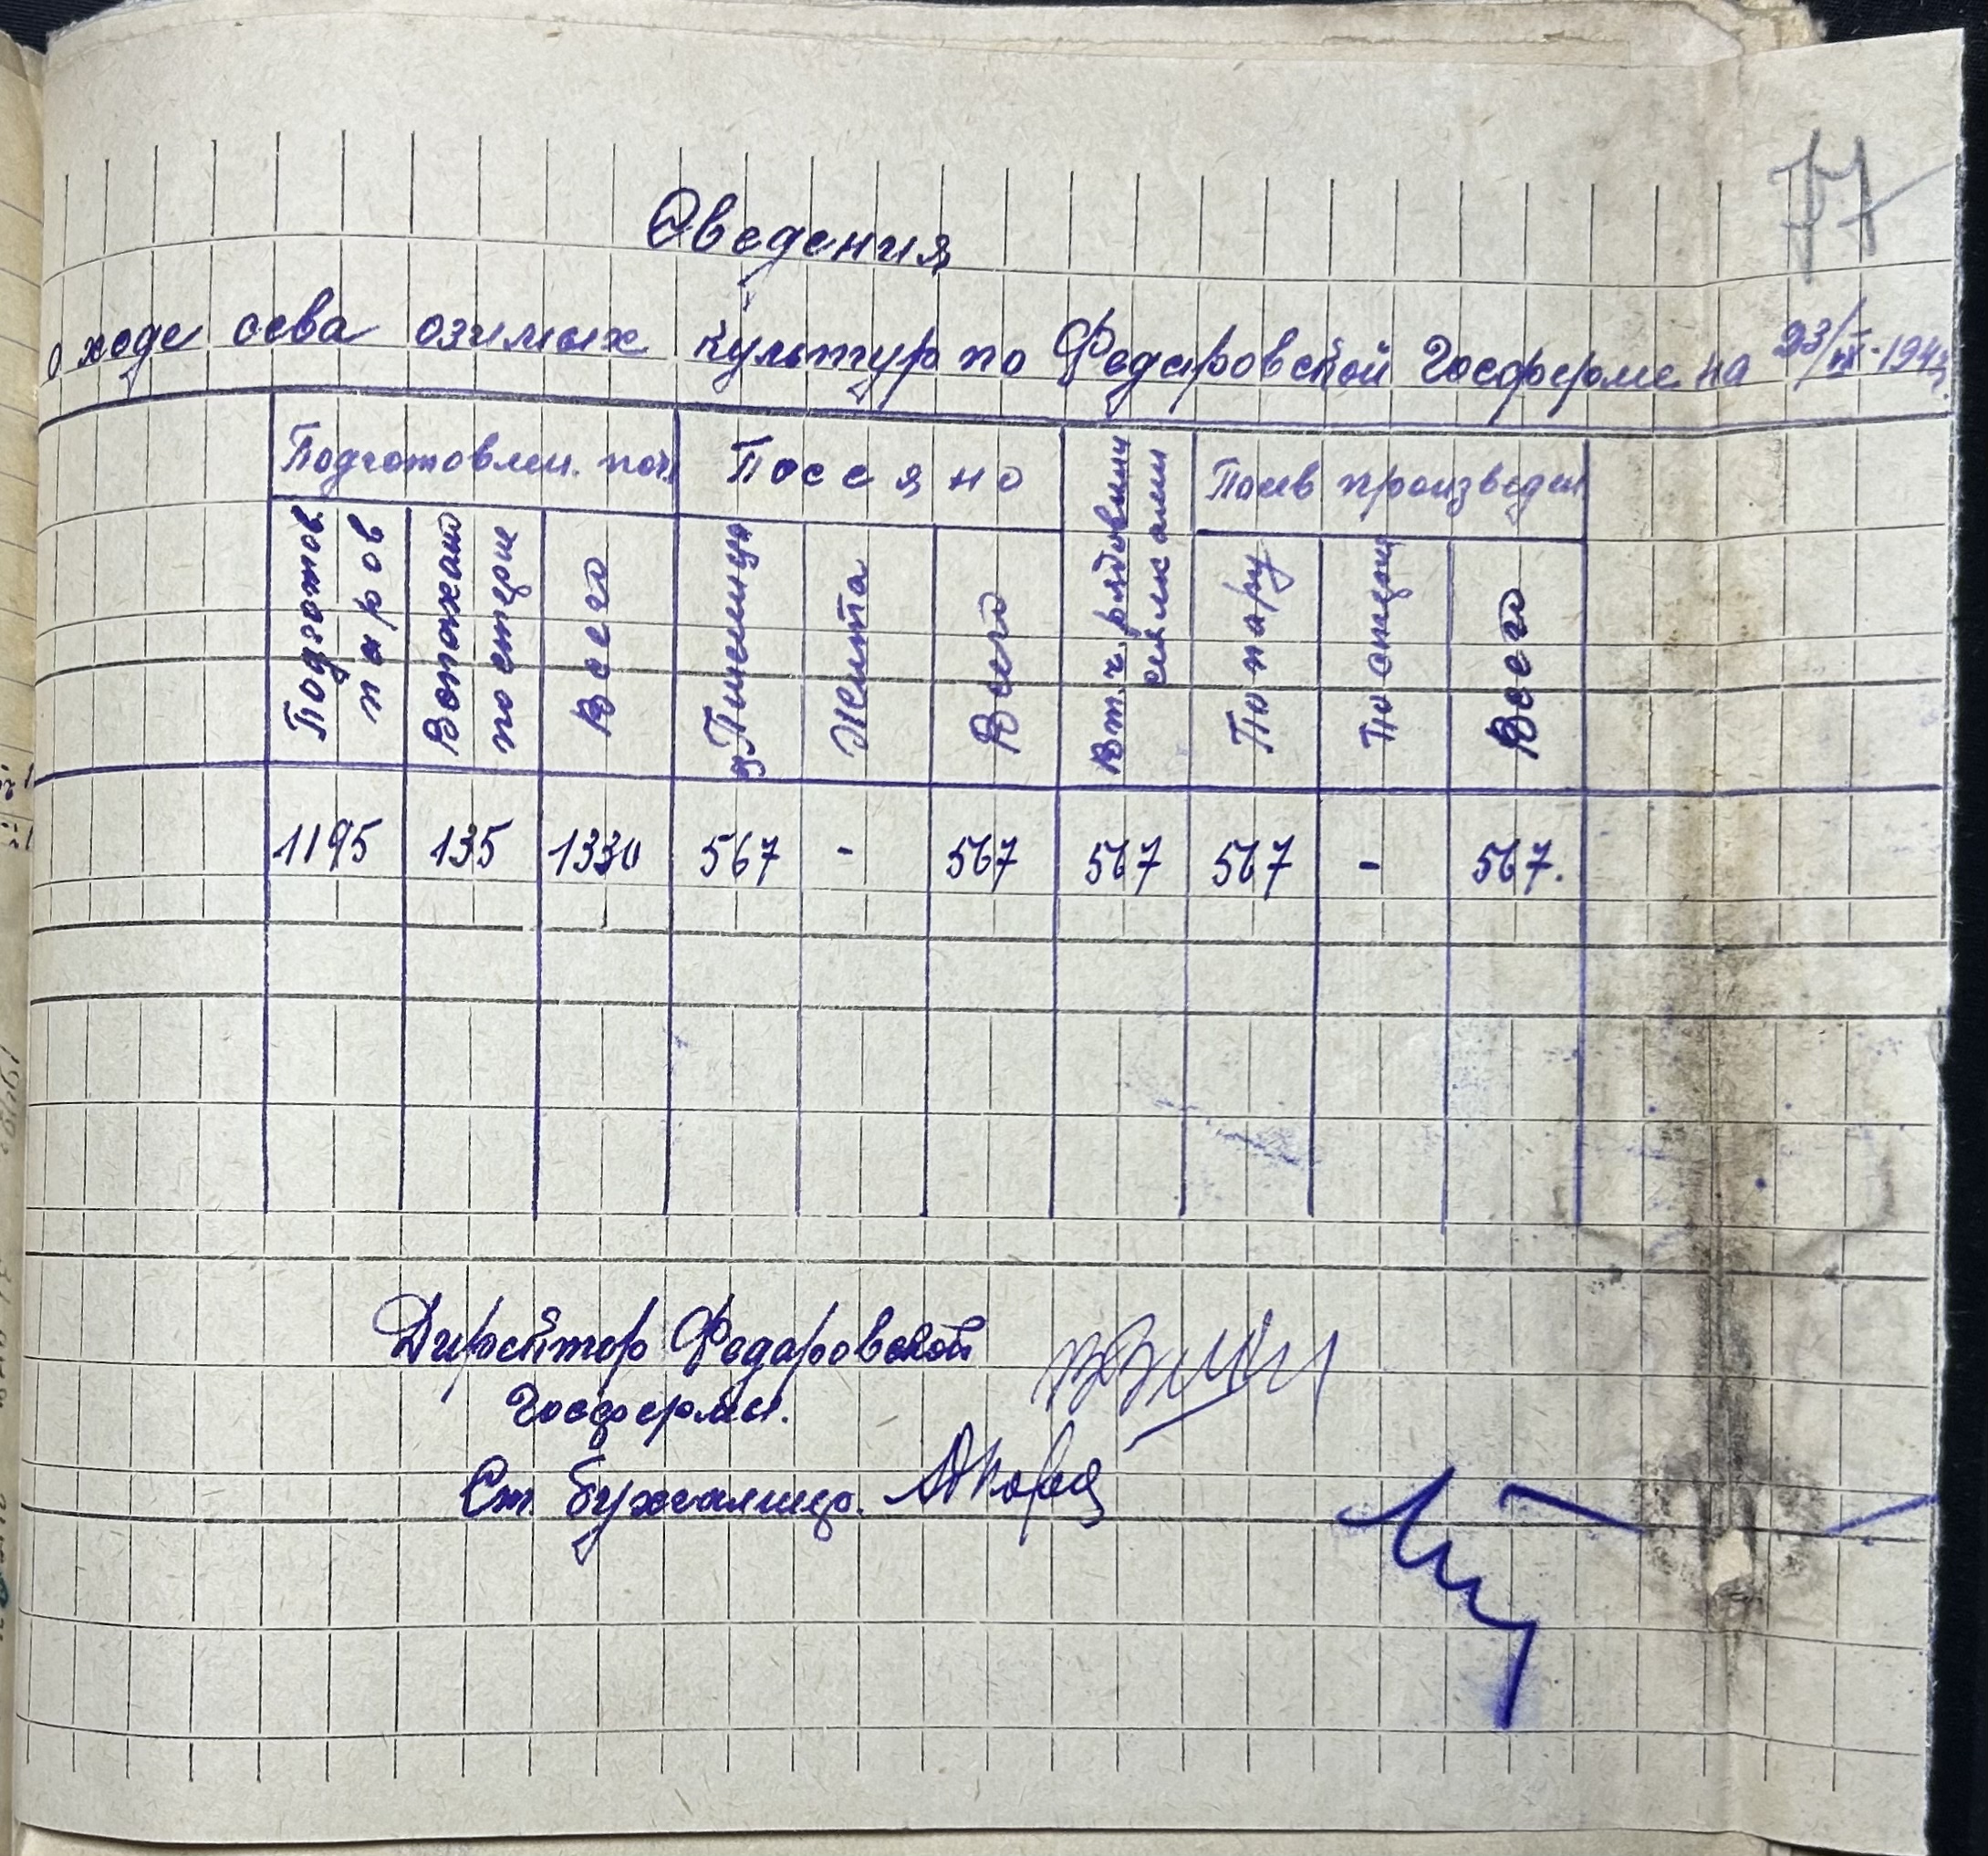 77
Сведения
о ходе сева озимых культур по Федоровской Госферме на 23/IX-1942
Подготовлен. поч. Посеяно В т. ч. рядовыми сеялками Посев произведен
Подготов. паров Вспахано по стерне Всего Пшеницы Жита Всего По пару Всего
1195 135 1330 567 - 567 567 567 - 567.
Директор Федоровской
Госфермы.
Ст. бухгалтер.